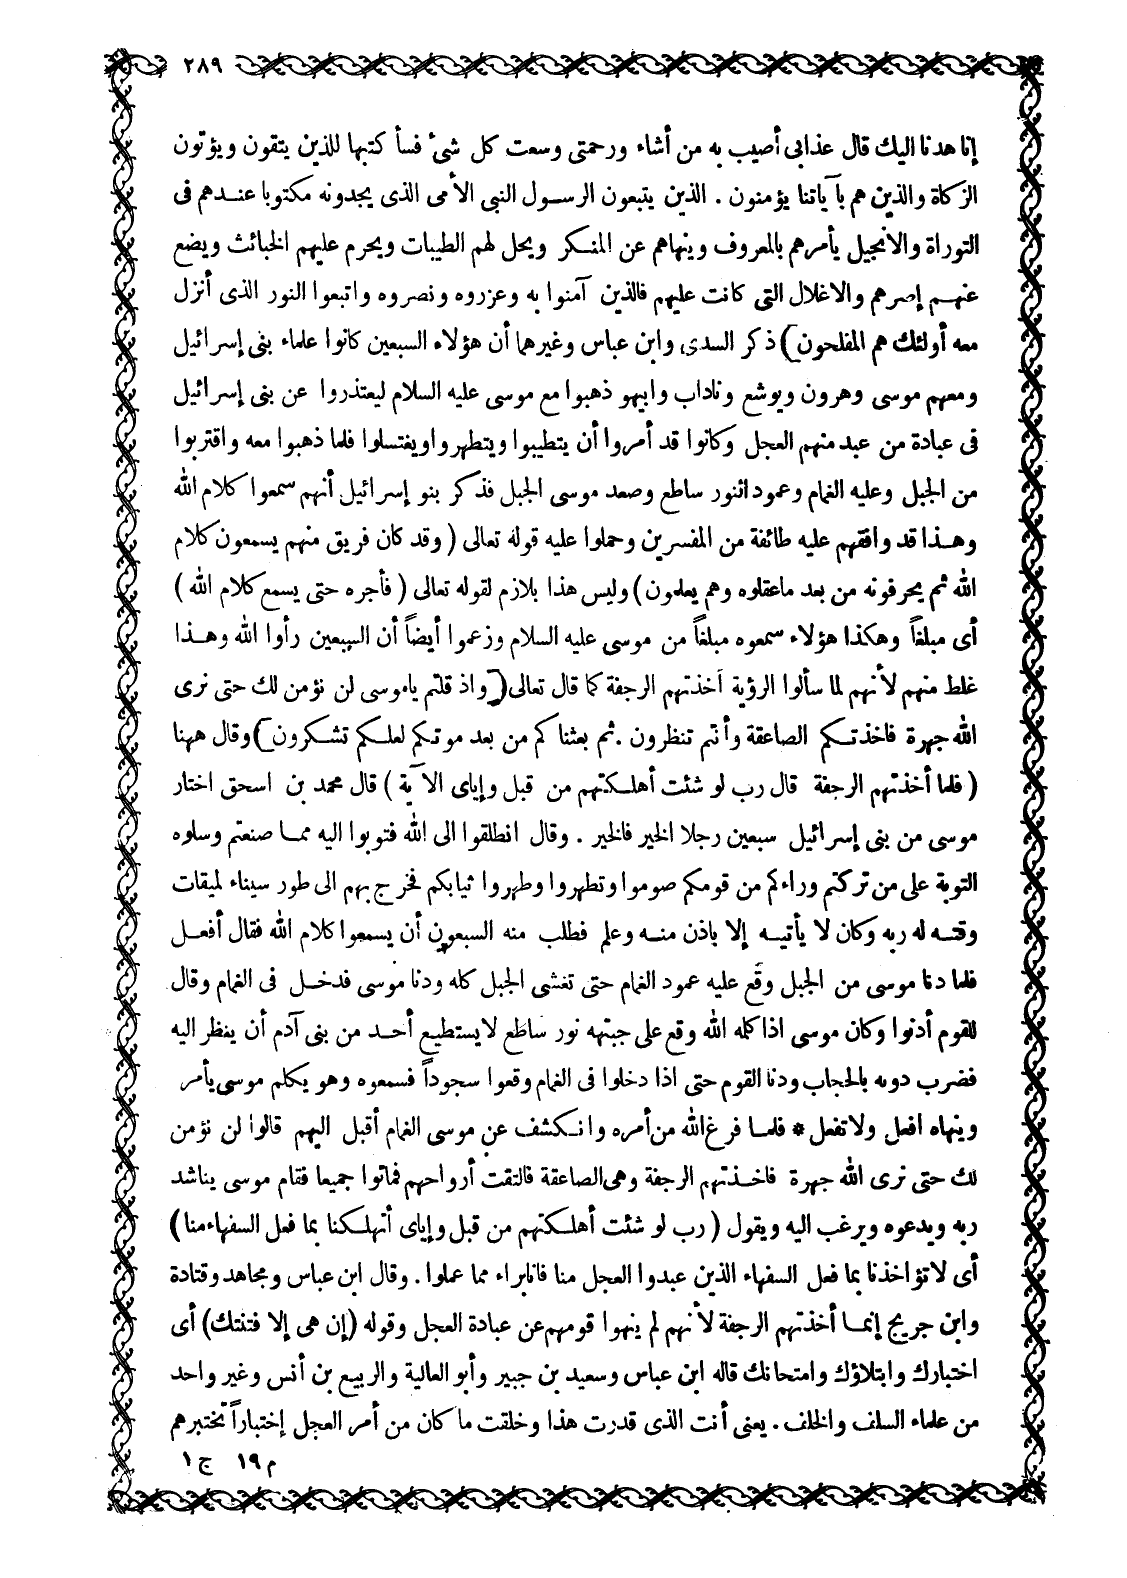 ٢٨٩
إنا هدنا اليك قال عذابى أصيب به من أشاء ورحمتى وسعت كل شئ فسأ كتبها للذين يتقون ويؤتون
الزكاة والذين هم بآياتنا يؤمنون . الذين يتبعون الرسول النبى الأمى الذى يجدونه مكتوبا عندهم فى
التوراة والانجيل يأمرهم بالمعروف وينهاهم عن المنكر ويحل لهم الطيبات ويحرم عليهم الخبائث ويضع
عنهم إصرهم والاغلال التى كانت عليهم فالذين آمنوا به وعزروه ونصروه واتبعوا النور الذى أنزل
معه أولئك هم المفلحون) ذكر السدى وابن عباس وغيرهما أن هؤلاء السبعين كانوا علماء بنى إسرائيل
ومعهم موسى وهرون ويوشع وناداب وابيهو ذهبوا مع موسى عليه السلام ليعتذروا عن بنى إسرائيل
فى عبادة من عبد منهم العجل وكانوا قد أمروا أن يتطيبوا ويتطهروا ويغتسلوا فلما ذهبوا معه واقتربوا
من الجبل وعليه الغمام وعمود النور ساطع وصعد موسى الجبل فذكر بنو إسرائيل أنهم سمعوا كلام الله
وهذا قد وافقهم عليه طائفة من المفسرين وحملوا عليه قوله تعالى ( وقد كان فريق منهم يسمعون كلام
الله ثم يحرفونه من بعد ماعقلوه وهم يعلمون) وليس هذا بلازم لقوله تعالى ( فأجره حتى يسمع كلام الله )
أى مبلغاً وهكذا هؤلاء سمعوه مبلغاً من موسى عليه السلام وزعموا أيضاً أن السبعين رأوا الله وهذا
غلط منهم لأنهم لما سألوا الرؤية أخذتهم الرجفة كما قال تعالى( واذ قلتم ياموسى لن نؤمن لك حتى نرى
الله جهرة فاخذتكم الصاعقة وأنتم تنظرون . ثم بعثناكم من بعد موتكم لعلكم تشكرون) وقال ههنا
( فلما أخذتهم الرجفة قال رب لو شئت أهلكتهم من قبل وإياى الآية ) قال محمد بن اسحق اختار
موسى من بنى إسرائيل سبعين رجلا الخير فالخير . وقال انطلقوا الى الله فتوبوا اليه مما صنعتم وسلوه
التوبة على من تركتم وراءكم من قومكم صوموا وتطهروا وطهروا ثيابكم فخرج بهم الى طور سيناء لميقات
وقته له ربه وكان لا يأتيه إلا باذن منه وعلم فطلب منه السبعون أن يسمعوا كلام الله فقال أفعل
فلما دنا موسى من الجبل وقع عليه عمود الغمام حتى تغشى الجبل كله ودنا موسى فدخل فى الغمام وقال
للقوم أدنوا وكان موسى اذا كلمه الله وقع على جبهته نور ساطع لا يستطيع أحد من بنى آدم أن ينظر اليه
فضرب دونه بالحجاب ودنا القوم حتى اذا دخلوا فى الغمام وقعوا سجوداً فسمعوه وهو يكلم موسى يأمر
وينهاه افعل ولا تفعل * فلما فرغ الله من أمره وانكشف عن موسى الغمام أقبل اليهم قالوا لن نؤمن
لك حتى نرى الله جهرة فاخذتهم الرجفة وهى الصاعقة فالتقت أرواحهم فماتوا جميعا فقام موسى يناشد
ربه ويدعوه ويرغب اليه ويقول ( رب لو شئت أهلكتهم من قبل وإياى أتهلكنا بما فعل السفهاء منا)
أى لا تؤاخذنا بما فعل السفهاء الذين عبدوا العجل منا فانا براء مما عملوا . وقال ابن عباس ومجاهد وقتادة
وابن جريج إنما أخذتهم الرجفة لأنهم لم ينهوا قومهم عن عبادة العجل وقوله (إن هى إلا فتنتك) أى
اختبارك وابتلاؤك وامتحانك قاله ابن عباس وسعيد بن جبير وأبو العالية والربيع بن أنس وغير واحد
من علماء السلف والخلف . يعنى أنت الذى قدرت هذا وخلقت ما كان من أمر العجل إختباراً تختبرهم
م ١٩ ج ١